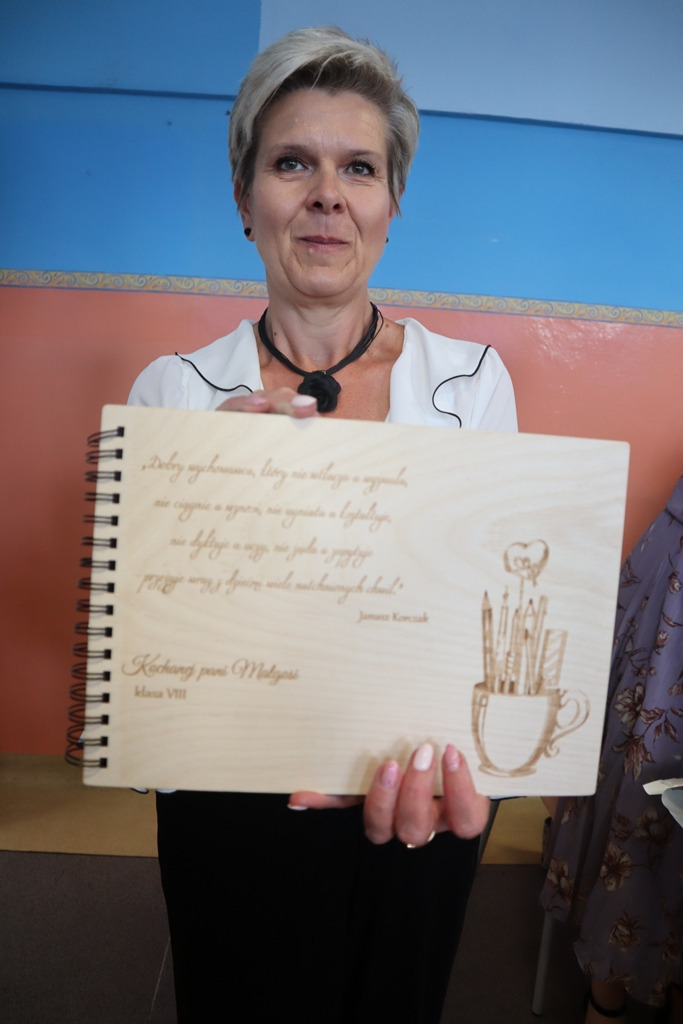 „Dobry wychowawca, który nie wtłacza a wyzwala,
nie ciągnie a wznosi, nie ugniata a kształtuje,
nie dyktuje a uczy, nie żąda a zapytuje
przeżyje wraz z dziećmi wiele natchnionych chwil."
Janusz Korczak
Kochanej pani Małgosi
klasa VIII